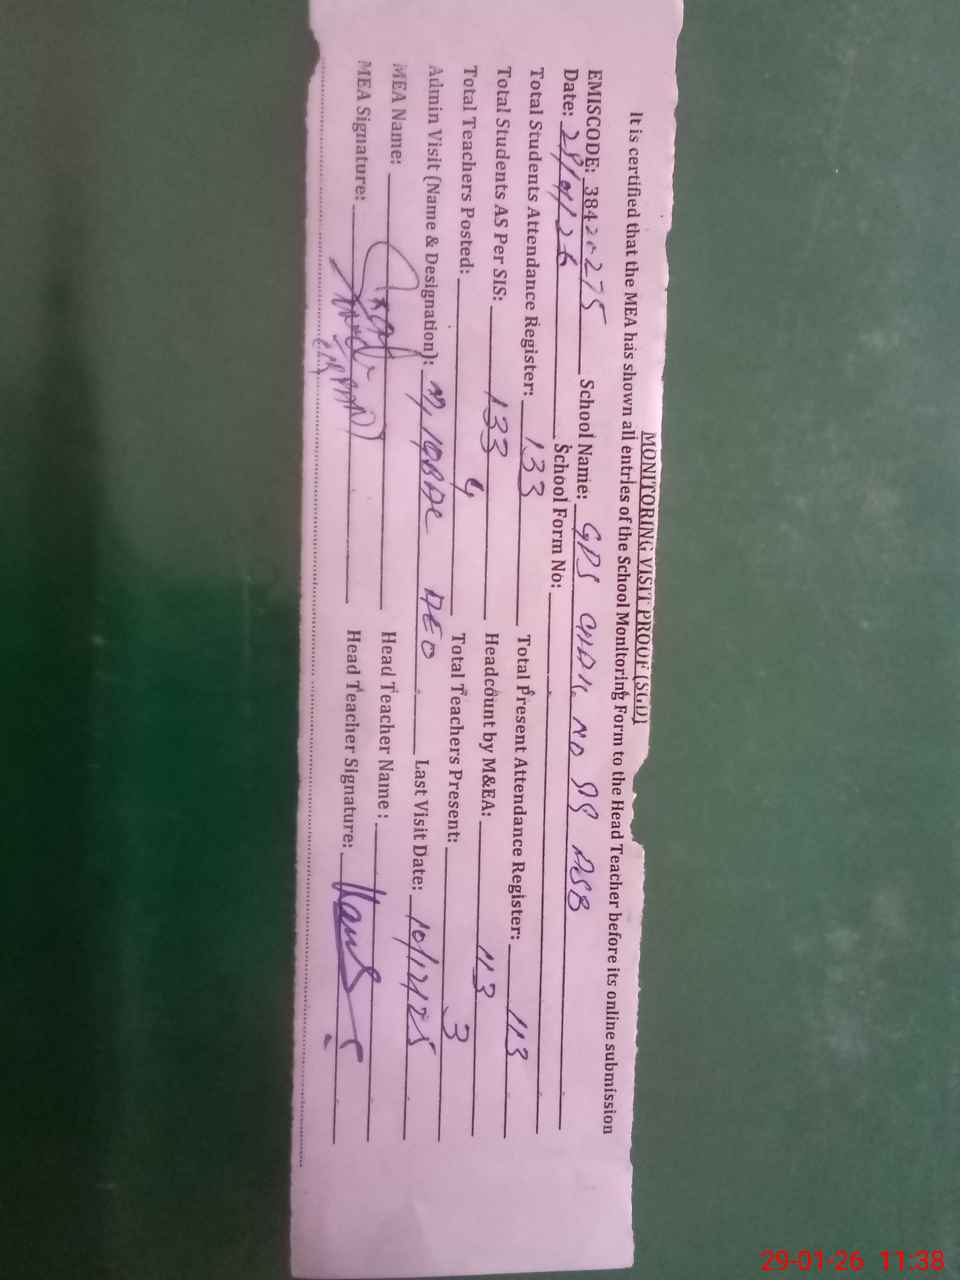 MONITORING VISIT PROOF (SGD)
It is certified that the MEA has shown all entries of the School Monitoring Form to the Head Teacher before its online submission
EMISCODE: 38420275 School Name: GPS CHAK NO 98 ASB
Date: 28/01/26 School Form No:
Total Students Attendance Register: 133 Total Present Attendance Register: 113
Total Students AS Per SIS: 133 Headcount by M&EA: 113
Total Teachers Posted: 4 Total Teachers Present: 3
Admin Visit (Name & Designation): AEO Last Visit Date: 10/12/25
MEA Name: Head Teacher Name:
MEA Signature: Head Teacher Signature:
29-01-26 11:38